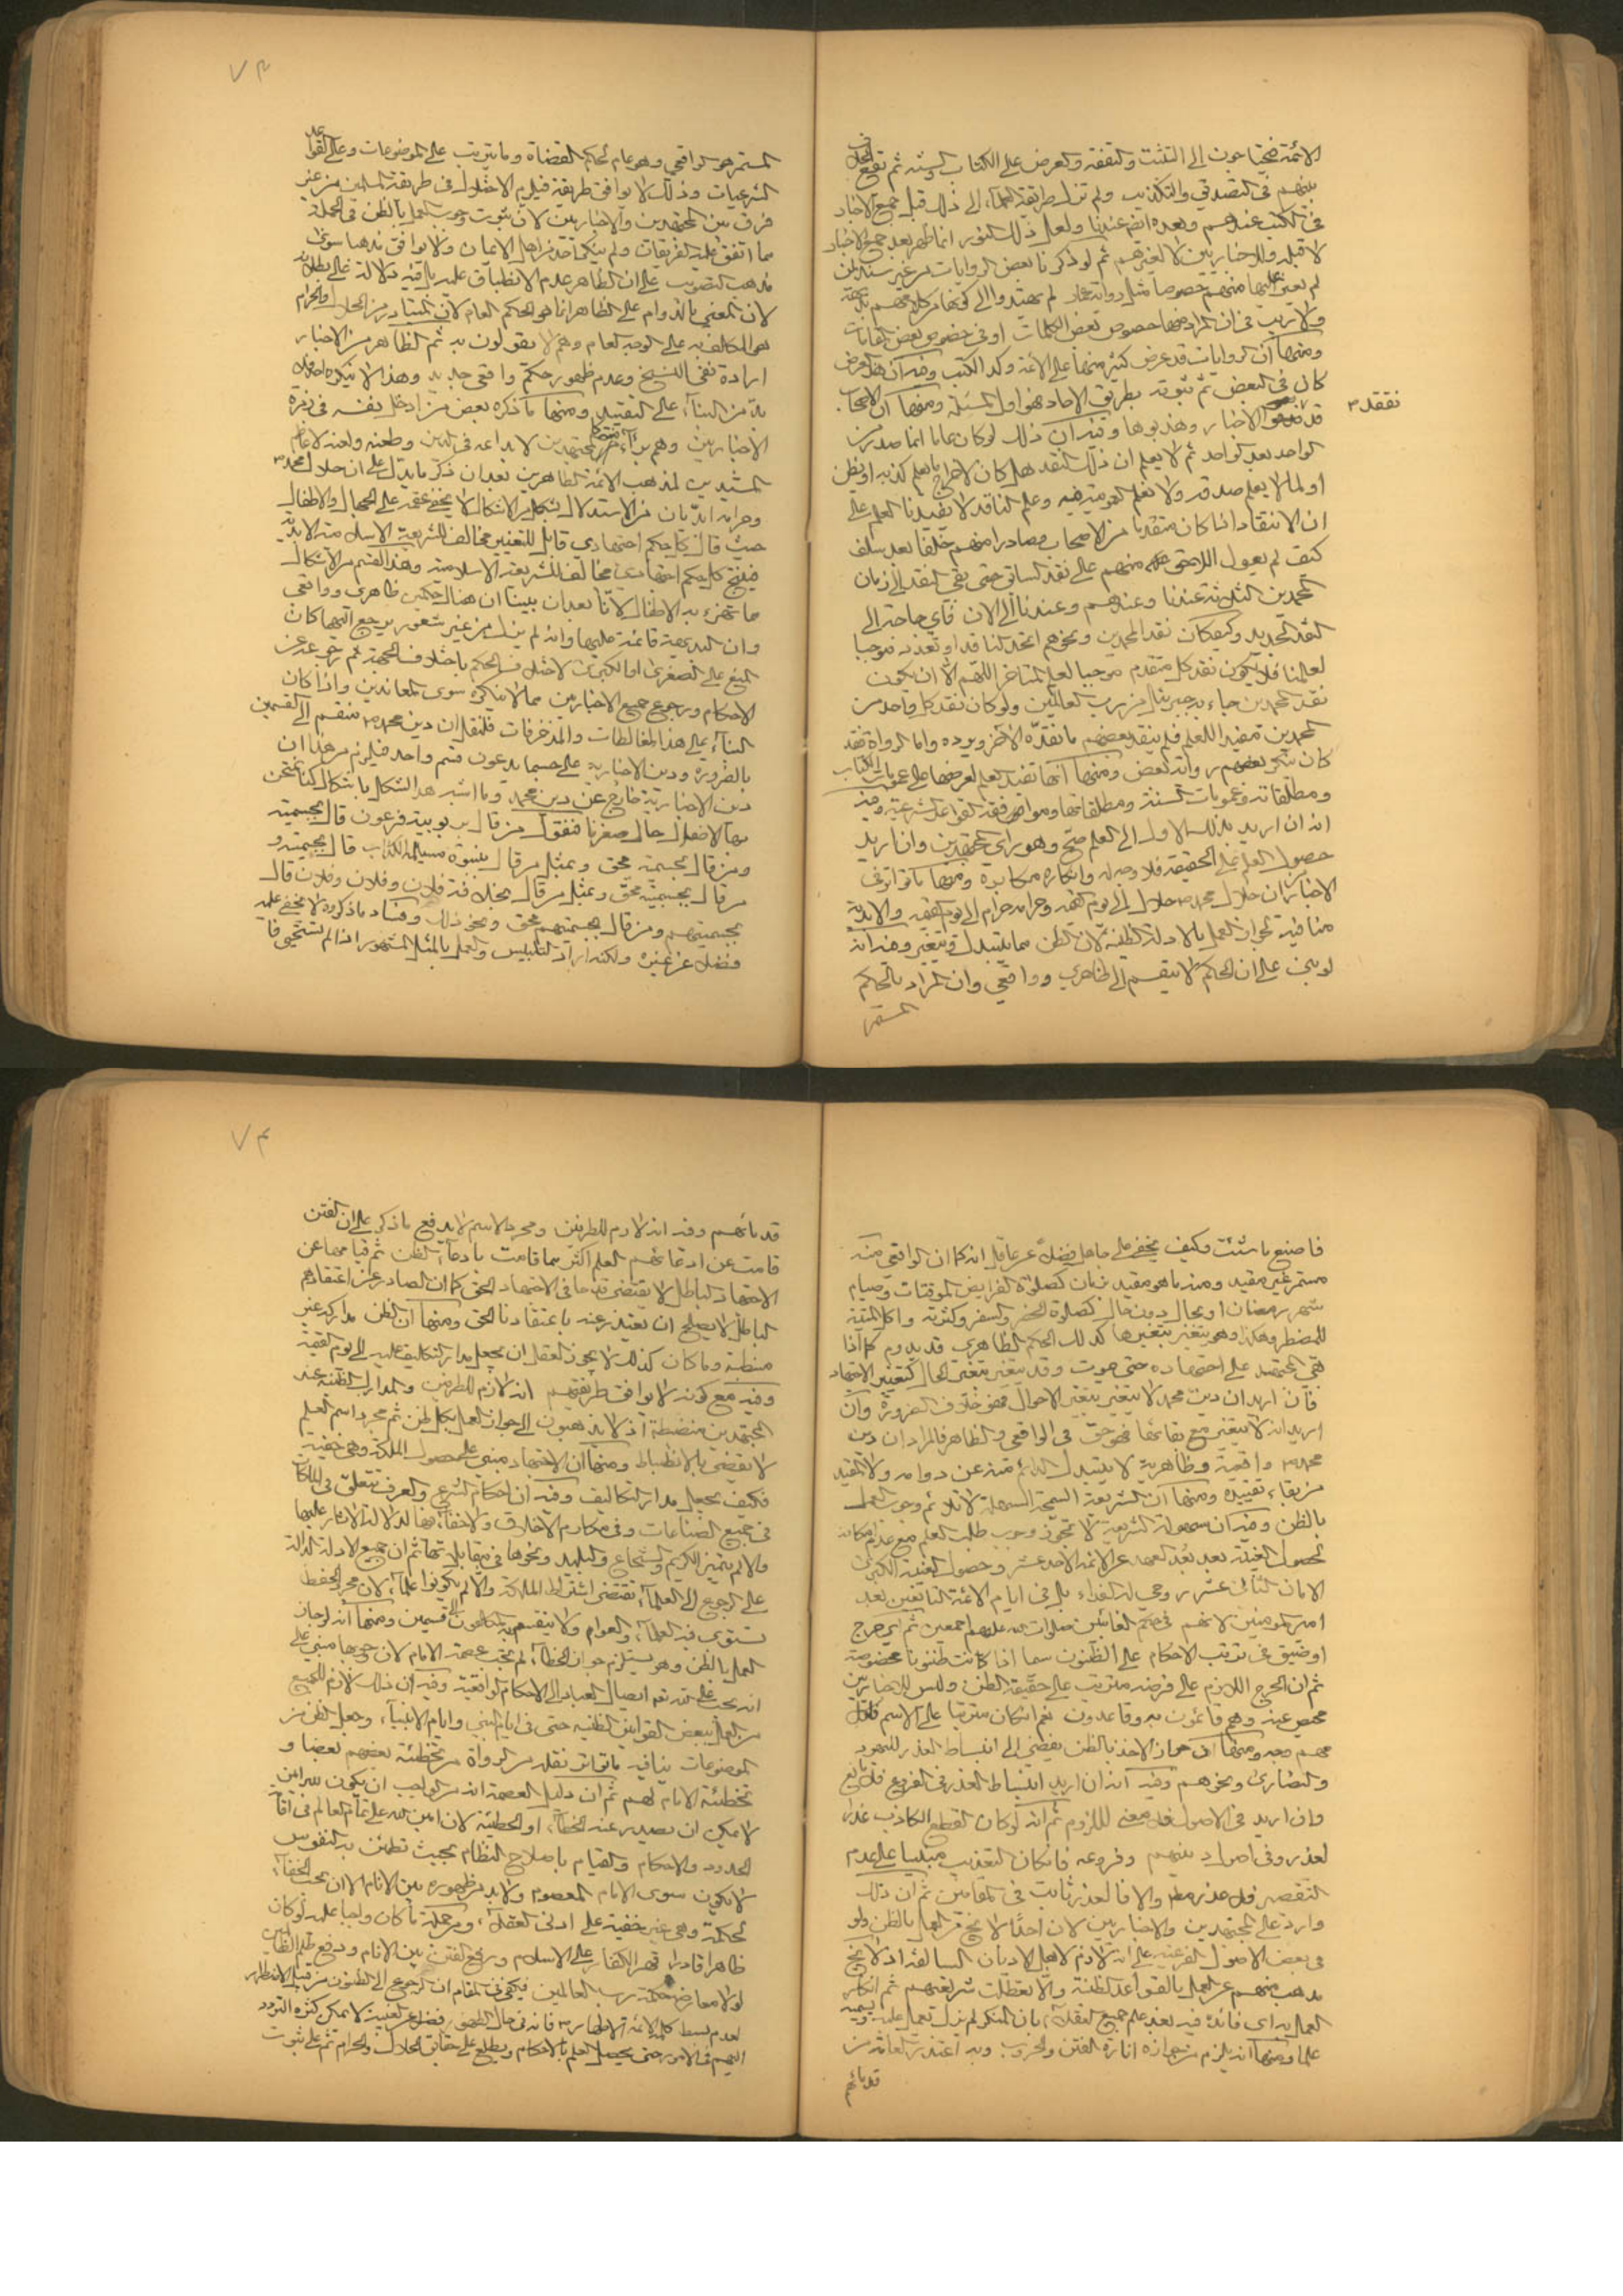 الائمة محتاجون الى التثبت والتفقه والعرض على الكتاب والسنة ثم تقع الخلاف
بينهم في التصديق والتكذيب ولم تزل طريقة العلماء الى ذلك قبل جمع الاخبار
في الكتب عندهم وبعده ايضا عندنا ولعل ذلك النور انما ظهر بعد جمع الاخبار
لا قبله وللاخباريين لا لغيرهم ثم لو ذكرنا بعض الروايات من غير سند لمن
لم يعثر عليها منهم خصوصا مثل رواية عمار لم يهتدوا الى كونها من كلامهم بديهة
ولا ريب في ان المراد منها خصوص بعض الكلمات او في خصوص بعض المقامات
ومنها ان الروايات قد عرض كثير منها على الائمة وكذا الكتب وفيه ان هذا العرض
كان في البعض ثم ثبوته بطريق الاحاد فهو اول المسئلة ومنها ان الاصحاب
قد نقدوا الاخبار وهذبوها وفيه ان ذلك لو كان عاما انما صدر من
الواحد بعد الواحد ثم لا يعلم ان ذلك النقد هل كان لاخراج ما يعلم كذبه او يظن
او لما لا يعلم صدقه ولا نعلم العمومية فيه وعلم الناقد لا يفيدنا العلم على
ان الانتقاد اذا كان متقدما من الاصحاب وصادرا منهم خلفا بعد سلف
كيف لم يعول اللاحق منهم على نقد السابق حتى بقي النقد الى زمان
المحمدين الثلثة عندنا وعندهم وعندنا الى الان فاي حاجة الى
النقد الجديد وكيف كان نقد المحمدين ونحوهم
لعلمنا فلا يكون نقد كل متقدم موجبا لعلم المتاخر اللهم الا ان يكون
نقد المحمدين جاء به جبرئيل من رب العالمين ولو كان نقد كل واحد من
المحمدين مفيد اللعلم فلم ينقد بعضهم ما نقده الاخر ويرده واما الرواة فقد
كان ينكر بعضهم رواية بعض ومنها انها تفيد العلم لعرضها على عمومات الكتاب
ومطلقاته وعمومات السنة ومطلقاتها وموافقة القواعد الشرعية وفيه
انه ان اريد بذلك الاول الى العلم صح وهو راي المجتهدين وان اريد
حصول العلم على الحقيقة فلا وجه له وانكاره مكابرة ومنها ما تواتر في
الاخبار من ان حلال محمد ص حلال الى يوم القيمة وحرامه حرام الى يوم القيمة والابدية
منافية لجواز العمل بالادلة الظنية لان الظن مما يتبدل ويتغير وفيه انه
لو بني على ان الحكم لا ينقسم الى ظاهري وواقعي وان المراد بالحكم
المستمر
نفقد ٣
٧٣
المستمر هو الواقعي وهو عام لحكم القضاة وما يترتب على الموضوعات وعلى القواعد
الشرعيات وذلك لا يوافق طريقة فيلزم الاختلال في طريقة المسلمين من غير
فرق بين المجتهدين والاخباريين لان ثبوت وجوب العمل بالظن في الجملة
مما اتفق عليه الفريقان ولم ينكره احد من اهل الايمان ولا يوافق مذهبا سوى
مذهب التصويب على ان الظاهر عدم الانطباق عليه
لان المعني بالدوام على الظاهر انما هو الحكم العام لان المتبادر من الحلال والحرام
هو المكالف به على الوجه العام وهم لا يقولون به ثم الظاهر من الاخبار
ارادة نفي النسخ وعدم ظهور حكم واقعي جديد وهذا لا ينكره احد فلا
بد من البناء على التقييد ومنها ما ذكره بعض من ادخل نفسه في زمرة
الاخباريين وهم برآء منه المجتهدين لابداعه في الدين وطعنه ولعنه لاعاظم
المشيدين لمذهب الائمة الطاهرين بعد ان ذكر ما يدل على ان حلال محمد ص
وحرامه ابديان من الاستدلال بشكل من الاشكال لا يخفى عقمه على الجهال والاطفال
حيث قال كل حكم اجتهادي قابل للتغيير مخالف للشريعة الاسلامية الابدية
فينتج كل حكم اجتهادي مخالف للشريعة الاسلامية وهذا القسم من الاشكال
ما تهزء به الاطفال لانا بعد ان بينا ان هناك حكمين ظاهري وواقعي
وان البديهة قائمة عليهما وانه لم ينل من غير شعور يرجع اليهما كان
المنع على الصغرى او الكبرى لاختلاف الحكم باختلاف الجهة ثم
الاحكام ورجوع جميع الاخباريين مما لا يناكره سوى المعاندين واذا كان
البناء على هذه المغالطات والمزخرفات فلنقل ان دين محمد ص منقسم الى القسمين
بالضرورة ودين الاخبارية على حسبما يدعون قسم واحد فيلزم من هذا ان
دين الاخبارية خارج عن دين محمد وما اشبه هذا الشكل باشكال كنا نمتحن
بها الاطفال حال صغرنا فنقول من قال بربوبية فرعون قال بجسميته
ومن قال بجسميته محق وبمثل من قال بنبوة مسيلمة الكذاب قال بجسميته و
من قال بجسميته محق وبمثل من قال بخلافة فلان وفلان وفلان قال
بجسميتهم ومن قال بجسميتهم محق ونحو ذلك وفساد ما ذكروه لا يخفى عليه
فضلا عن غيره ولكنه اراد التلبيس والعمل بالمثل المشهور اذا لم تستحي فا
فاصنع ما شئت وكيف يخفى على جاهل فضلا عن عاقل انه كما ان الواقعي منه
مستمر غير مقيد ومنه ما هو مقيد بزمان كصلوة الفرايض الموقتات وصيام
شهر رمضان او بحال دون حال كصلوة الحضر والسفر وكثرته واكل الميتة
للمضطر وهكذا وهو يتغير بتغيرها كذلك الحكم الظاهري قد يدوم كما اذا
بقي المجتهد على اجتهاده حتى يموت وقد يتغير بتغير الحال كتغيير الاجتهاد
فان اريد ان دين محمد لا يتغير بتغير الاحوال فهو خلاف الضرورة وان
اريد انه لا يتغير مع بقائها فهو حق في الواقعي والظاهر فالمراد ان دين
محمد ص واقعية وظاهرية لا يتبدل الدائم منه عن دوامه ولا المقيد
من بقاء تقييده ومنها ان الشريعة السمحة السهلة لا تلائم وجوب العمل
بالظن وفيه ان سهولة الشريعة لا تجوز وجوب طلب العلم مع عدم امكانه
لحصول الغيبة بعد بعد العهد عن الائمة الاحد عشر وحصول الغيبة الكبرى
الامام الثاني عشر روحي له الفداء بل في ايام الائمة السابقين بعد
امير المومنين لانهم في حكم الغائبين صلوات الله عليهم اجمعين ثم اي حرج
او ضيق في ترتب الاحكام على الظنون سيما اذا كانت ظنونا مخصوصة
ثم ان الحرج اللازم على فرضه مترتب على حقيقة الظن وليس للاخباريين
محيص عنه وهم قائمون به وقاعدون نعم ان كان مترتبا على الاسم
ومنها ان جواز الاخذ بالظن يفضي الى انبساط العذر لليهود
والنصارى ونحوهم وفيه انه ان اريد انبساط العذر في الفروع فلا مانع
وان اريد في الاصول فلا معنى لللزوم ثم انه لو كان القطع الكاذب عذرا
لعذروا في اصول دينهم وفروعه فان كان التعذيب مبنيا على عدم
التقصير فلا عذر والا فالعذر ثابت في المقامين ثم ان ذلك
وارد على المجتهدين والاخباريين لان احدا لا يخرج عن العمل بالظن ولو
في بعض الاصول الفرعية على انه لازم لاهل الاديان السالفة اذ لا يخرج
مذهب منهم عن العمل بالقواعد الظنية والا لعطلت شريعتهم ثم انكار
العمل به اي فائدة فيه بعد علم جميع العقلاء بان المنكر لم يزل يعمل عليه ويسميه
علما ومنها انه يلزم من جوازه اثارة الفتن والحروب وبه اعتذر العامة من
قدمائهم
٧٤
قدمائهم وفيه انه لازم للطرفين ومجرد الاسم لا يدفع ما ذكر على ان الفتن
قامت عن ادعائهم العلم اكثر مما قامت بادعاء الظن ثم قيامها عن
الاجتهاد الباطل لا يقتضي قدحا في الاجتهاد الحق كما ان الصادر عن اعتقادهم
الباطل لا يصلح ان يعتذر عنه باعتقادنا الحق ومنها ان الظن مداركه غير
منضبطة وما كان كذلك لا يجوز العقل ان يجعل مدار التكاليف عليه الى يوم القيمة
وفيه مع كونه لا يوافق طريقتهم انه لازم للطرفين والمدارك الظنية عند
المجتهدين منضبطة اذ لا يذهبون الى جواز العمل بكل ظن ثم مجرد اسم العلم
لا يقضي بالانضباط ومنها ان الاجتهاد مبني على حصول الملكة وهي خفية
فكيف يجعل مدار التكاليف وفيه ان احكام الشرع والعرف تتعلق في الملكات
في جميع الصناعات وفي مكارم الاخلاق ولا خفاء بها لدلالة الاثار عليها
والا لم يتميز الكريم والشجاع والبليد ونحوها في مقابلاتها ثم ان جميع الادلة الدالة
على الرجوع الى العلماء تقتضي اشتراط الملكة والا لم يكونوا علماء لان مجرد الحفظ
يستوي فيه العلماء والعوام ولا ينقسم المكلفون الى قسمين ومنها انه لو جاز
العمل بالظن وهو يستلزم جواز الخطاء لم تجب عصمة الامام لان وجوبها مبني على
انه يجب على الله تع ايصال العباد الى الاحكام الواقعية وفيه ان ذلك لازم للجميع
من العمل ببعض القوانين الظنية حتى في ايام النبي وايام الانبياء وجعل الظن من
الموضوعات ينافيه ما تواتر نقله من الرواة من تخطئة بعضهم بعضا و
تخطئة الامام لهم ثم ان دليل العصمة انه من الواجب ان يكون لله امين
لا يمكن ان يصدر عنه الخطاء او الخطيئة لان امين الله على تمام العالم في اقامة
الحدود والاحكام والقيام باصلاح النظام بحيث تطمئن به النفوس
لا يكون سوى الامام المعصوم ولا بد من ظهوره بين الانام الا ان يجب الخفاء
لحكمة وهي غير خفية على ادنى العقلاء ومن حكمة ما كان واجبا عليه لو كان
ظاهرا قادرا قهر الكفار على الاسلام ورفع الفتن بين الانام ودفع ظلم الظالمين
لولا معارضة حكمة رب العالمين فيكفي في المقام ان الرجوع الى الظنون من قبل الاضطرار
لعدم بسط كلمة الائمة الاطهار ع فانه في حال الظهور فضلا عن الغيبة لا يمكن كثرة التردد
اليهم في الامور حتى يحصل العلم بالاحكام ويطلع على حقائق الحلال والحرام ثم على ثبوت